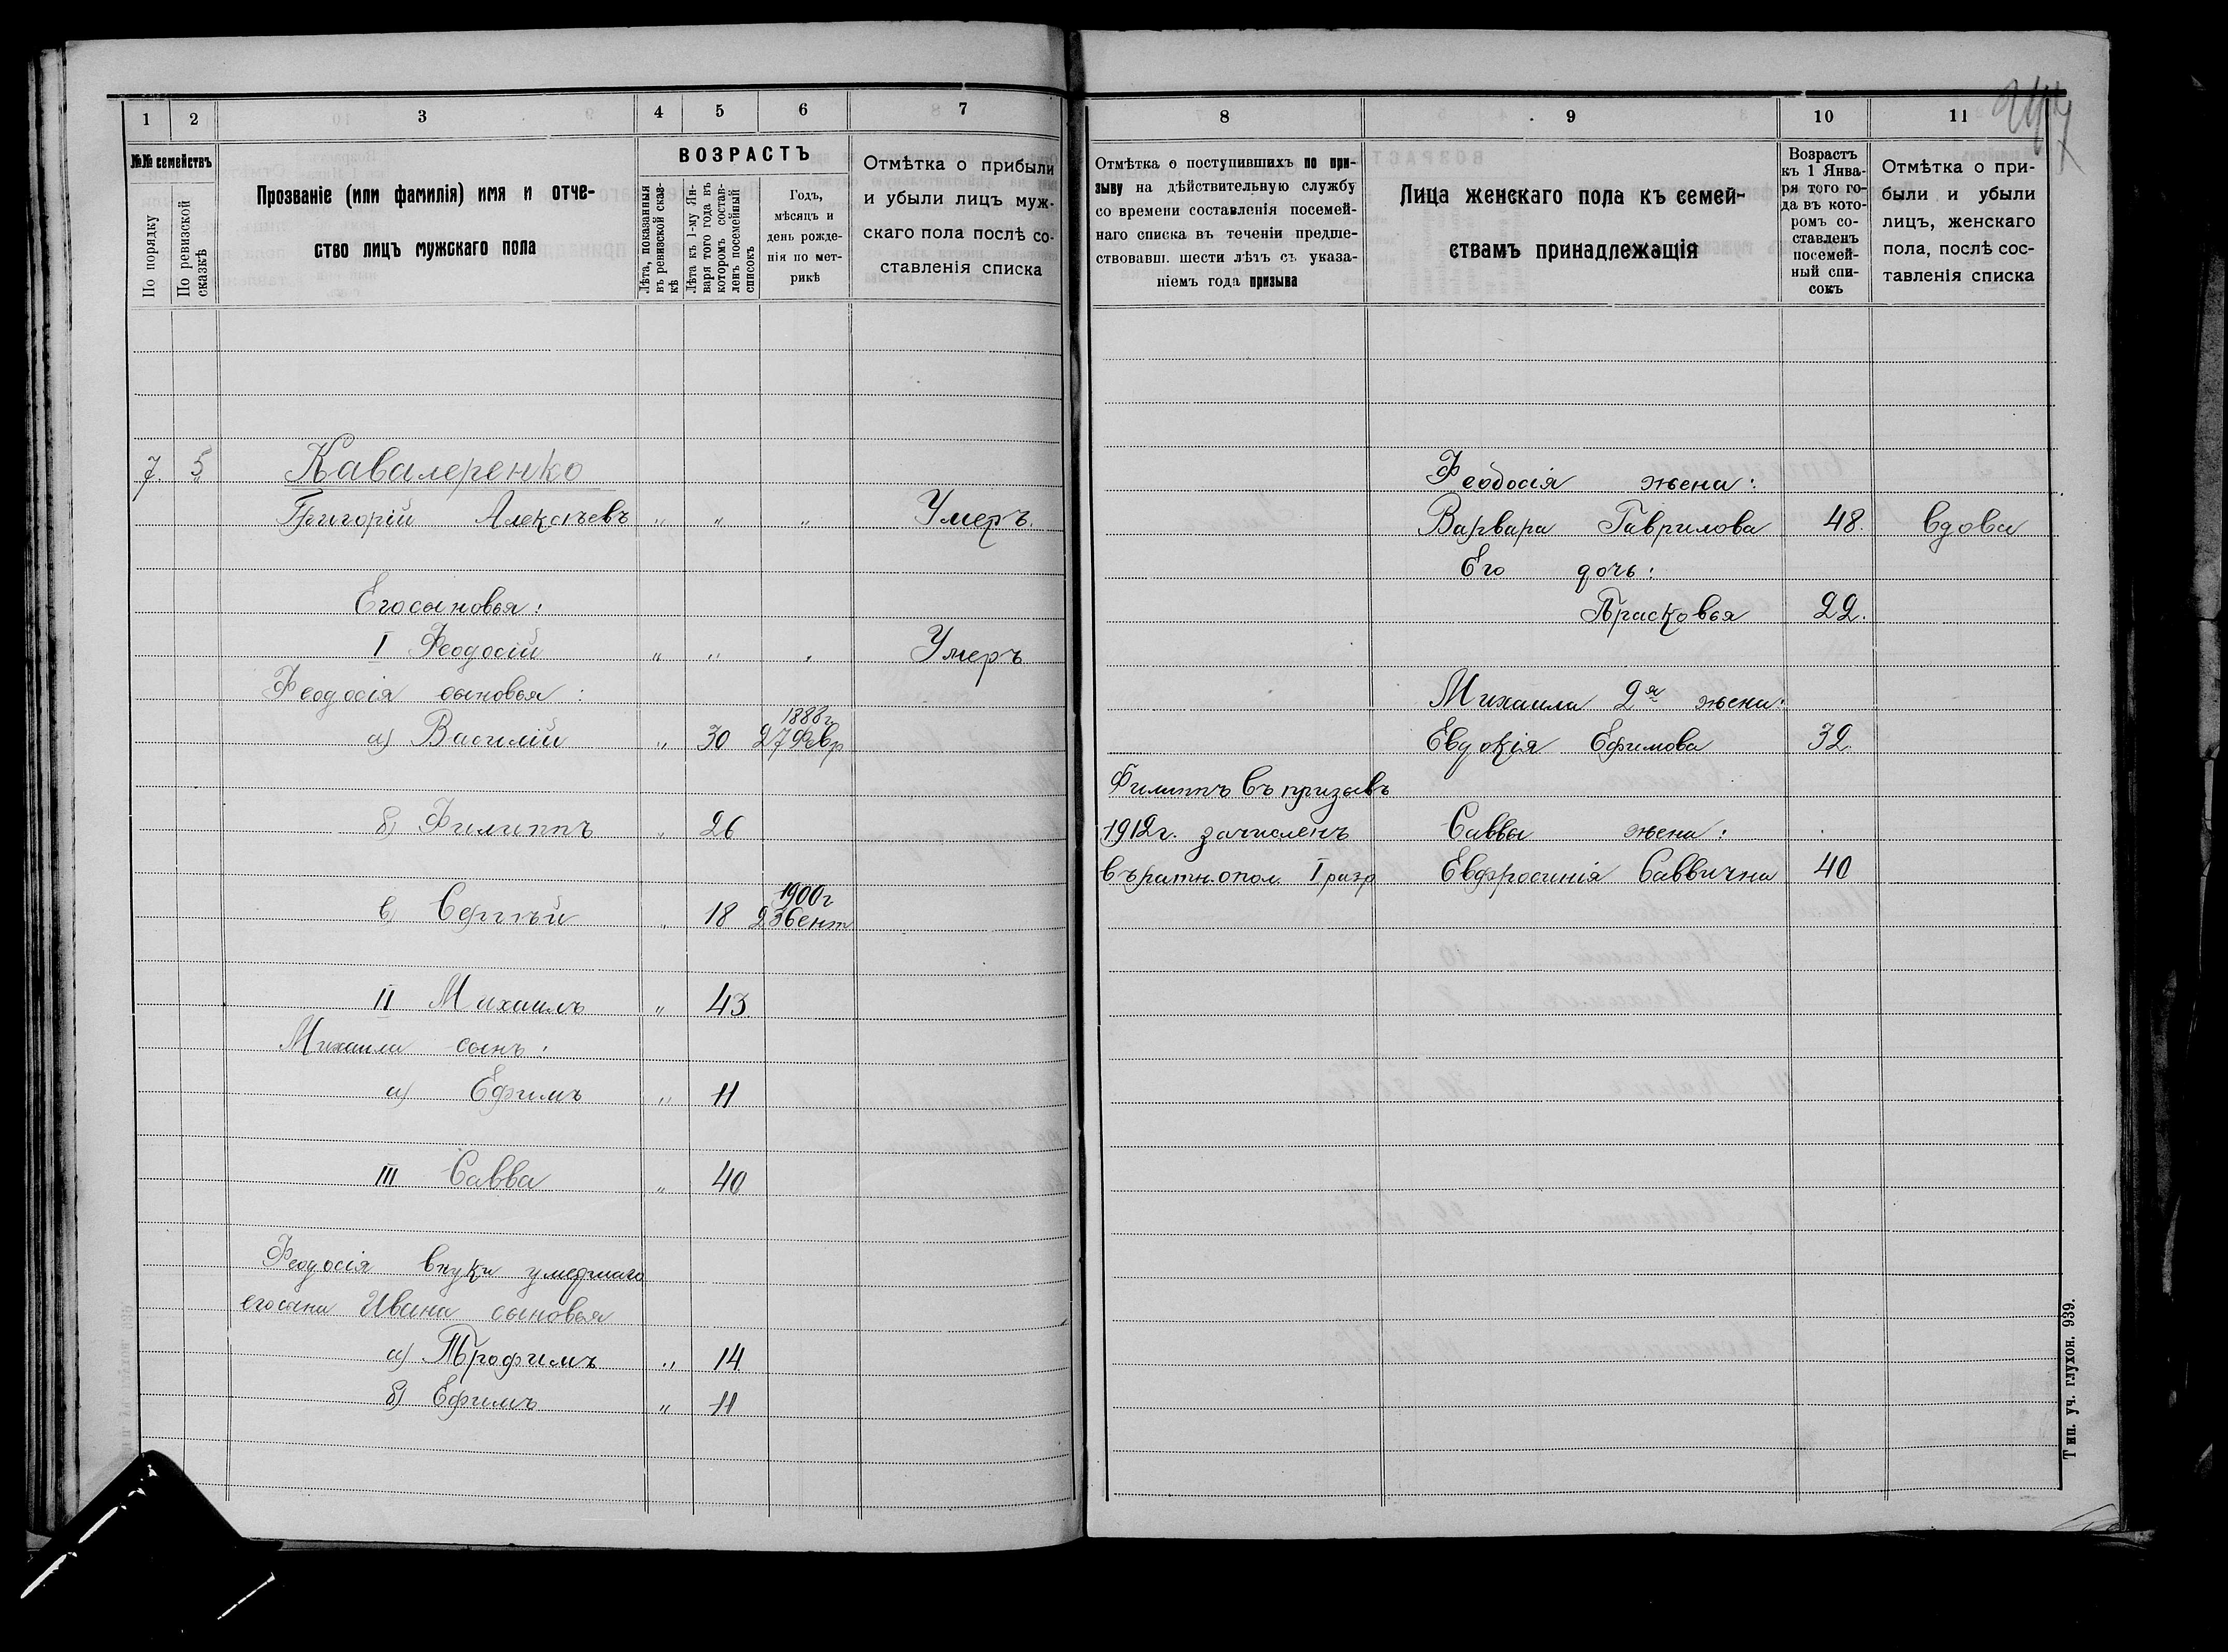 1 2 3 4 5 6 7
№№ семействъ
По порядку
По ревизской сказкѣ
Прозваніе (или фамилія) имя и отче-
ство лицъ мужскаго пола
ВОЗРАСТЪ
Лѣта, показанныя
въ ревизской сказ-
кѣ
Лѣта къ 1-му Ян-
варя того года въ
которомъ состав-
ленъ посемейный
списокъ
Годъ,
мѣсяцъ и
день рожде-
нія по мет-
рикѣ
Отмѣтка о прибыли
и убыли лицъ муж-
скаго пола послѣ со-
ставленія списка
7. 5 Кавалеренко
Григорій Алексѣевъ " " " Умеръ.
Его сыновья:
I Феодосій " " " Умеръ
Феодосія сыновья:
1888г
а) Василій " 30 27 Февр
б) Филиппъ " 26
1900г
в) Сергѣй " 18 23 Сент
II Михаилъ " 43
Михаила сынъ:
а) Ефимъ " 11
III Савва " 40
Феодосія внуки умершаго
его сына Ивана сыновья
а) Трофимъ " 14
б) Ефимъ " 11
8 9 10 11
Отмѣтка о поступившихъ по при-
зыву на дѣйствительную службу
со времени составленія посемей-
наго списка въ теченіи предше-
ствовавш. шести лѣтъ съ указа-
ніемъ года призыва
Лица женскаго пола къ семей-
ствамъ принадлежащія
Возрастъ
къ 1 Янва-
ря того го-
да въ кото-
ромъ со-
ставленъ
посемей-
ный спи-
сокъ
Отмѣтка о при-
были и убыли
лицъ, женскаго
пола, послѣ сос-
тавленія списка
Феодосія жена:
Варвара Гаврилова 48. вдова
Его дочь:
Прасковья 22.
Михаила 2я жена:
Евдокія Ефимова 32.
Филиппъ въ призывъ
1912г. зачисленъ Саввы жена:
въ ратн. опол. I разр Евфросинія Саввична 40
Тип. Уч. Глухон. 939.